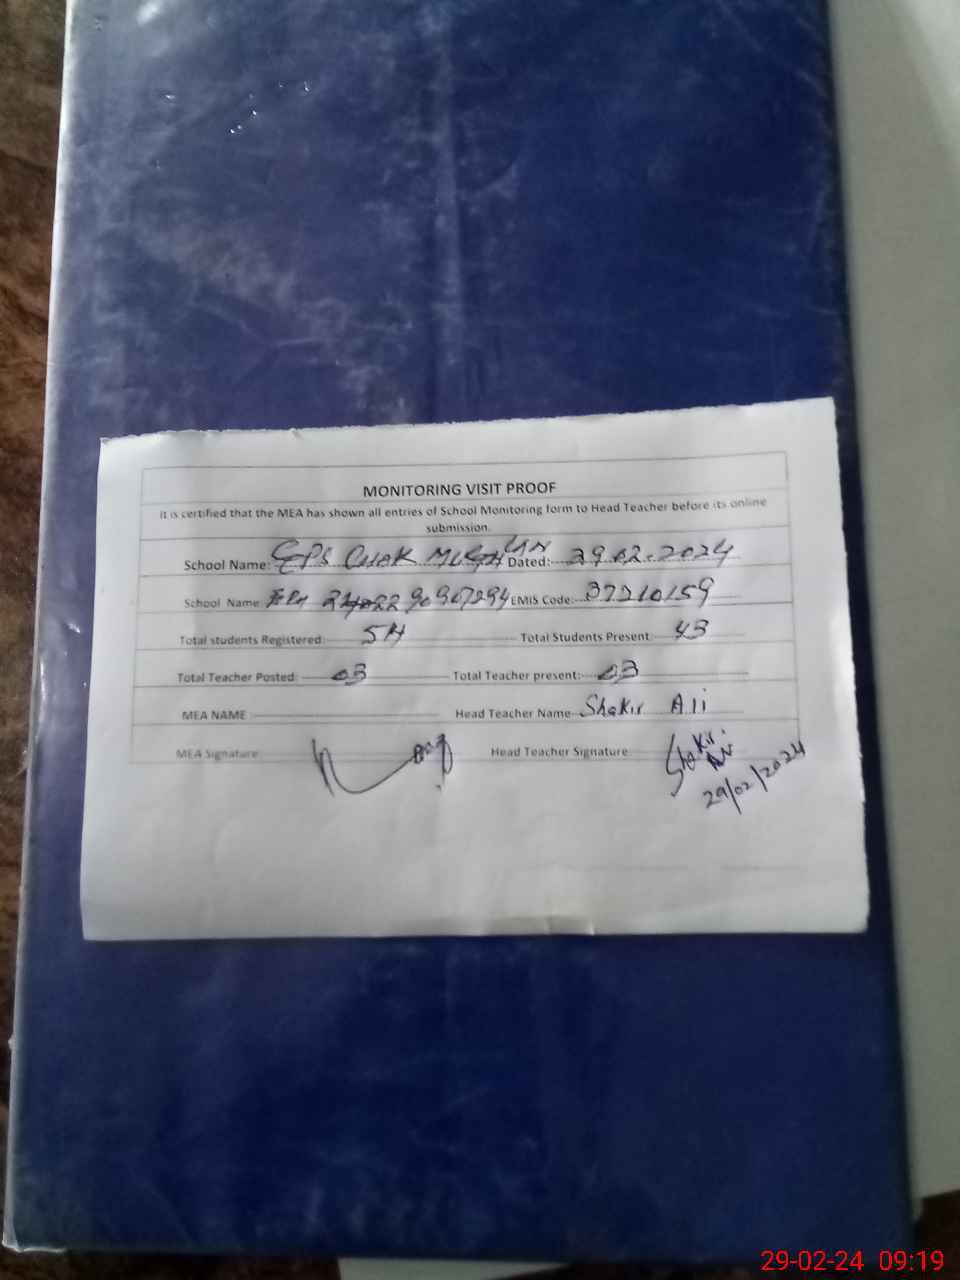 MONITORING VISIT PROOF
It is certified that the MEA has shown all entries of School Monitoring form to Head Teacher before its online
submission.
School Name: GPS CHAK MUGHLAN Dated: 29.02.2024
School Name: EMIS Code: 37210159
Total students Registered: 54 Total Students Present: 43
Total Teacher Posted: 03 Total Teacher present: 03
MEA NAME Head Teacher Name Shakir Ali
MEA Signature Head Teacher Signature Shakir
Ali
29/02/2024
29-02-24 09:19